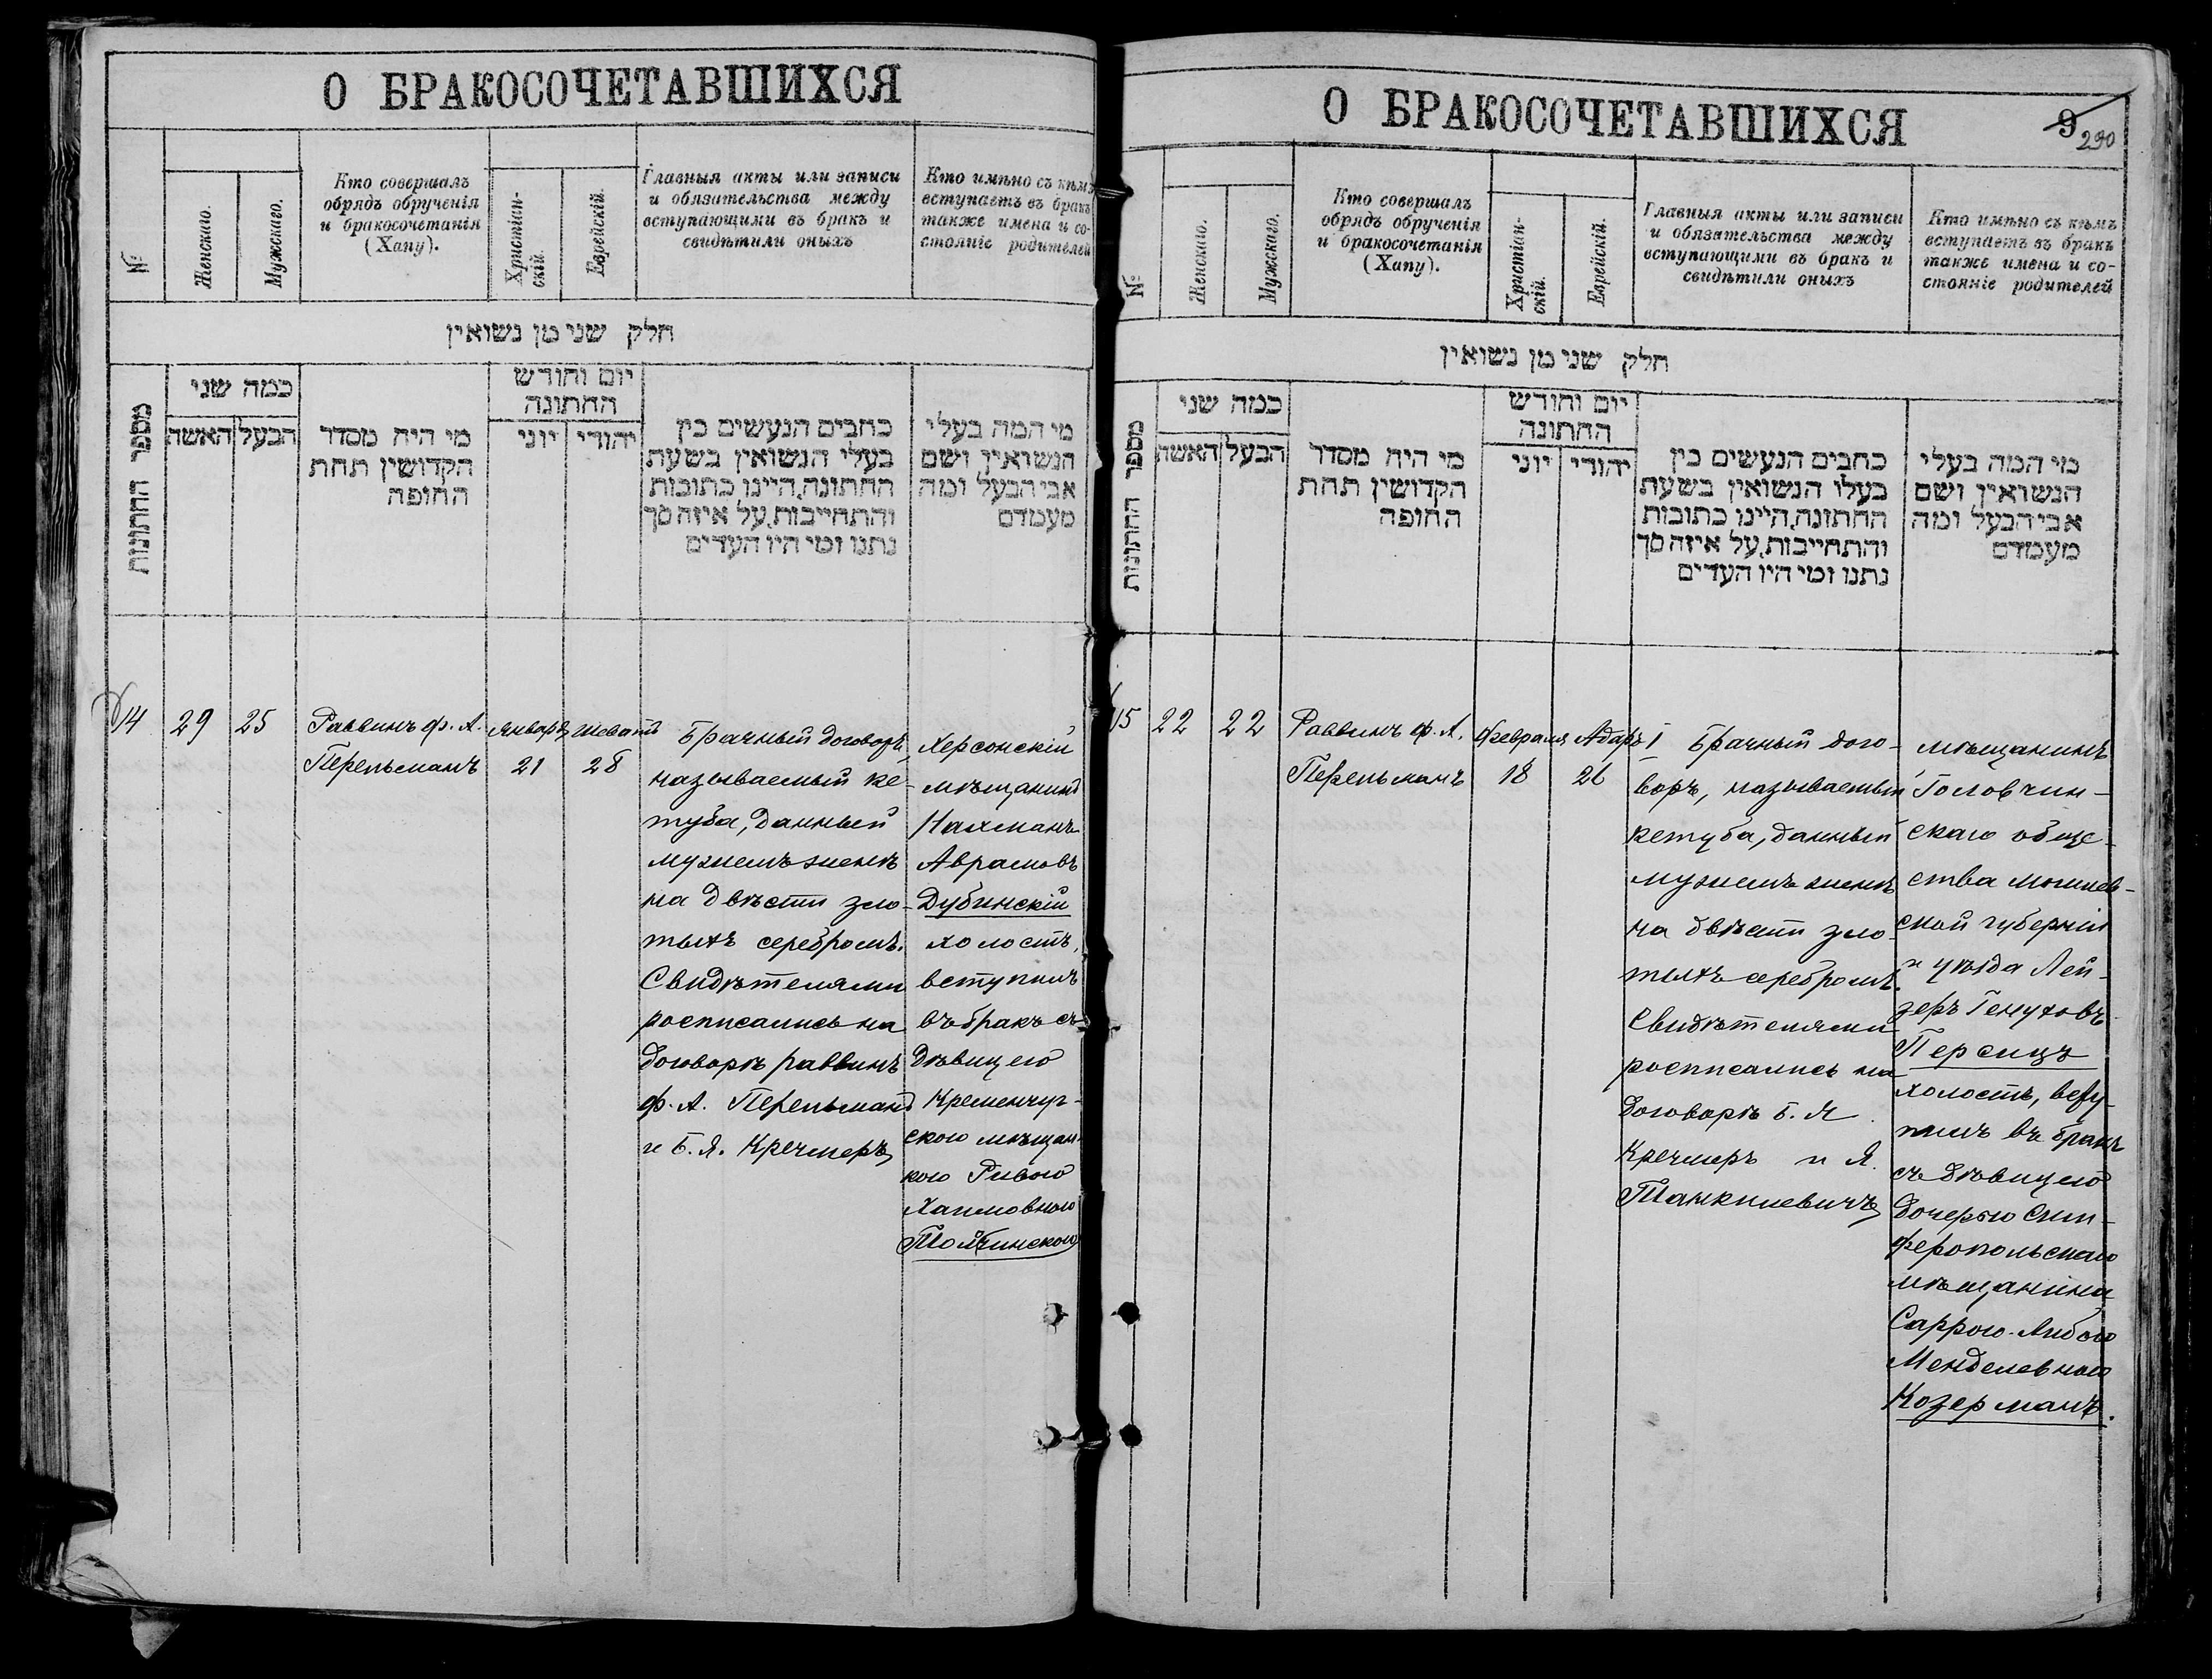 О БРАКОСОЧЕТАВШИХСЯ
№
Женскаго.
Мужскаго.
Кто совершалъ
обрядъ обрученія
и бракосочетанія
(Хапу).
Христіан-
скій.
Еврейскій.
Главныя акты или записи
и обязательства между
вступающими въ бракъ и
свидѣтили оныхъ
Кто имѣно съ кѣмъ
вступаетъ въ бракъ
также имена и со-
стояніе родителей
חלק שני מן נשואין
מספר החתונות
כמה שני
האשה
הבעל
מי היה מסדר
הקדושין תחת
החופה
יום וחודש
החתונה
יוני
יהודי
כתבים הנעשים בין
בעלי הנשואין בשעת
החתונה, היינו כתובות
והתחייבות, על איזה סך
נתנו ומי היו העדים
מי המה בעלי
הנשואין ושם
אבי הבעל ומה
מעמדם
14
29
25
Раввинъ Ф. А.
Перельманъ
Январь
21
Шеватъ
28
Брачный договоръ,
называемый ке-
туба, данный
мужемъ женѣ
на двѣсти зло-
тыхъ серебромъ.
Свидѣтелями
росписались на
договорѣ раввинъ
Ф. А. Перельманъ
и Б. Я. Кречмеръ
Херсонскій
мѣщанинъ
Нахманъ
Аврамовъ
Дубинскій
холостъ,
вступилъ
въ бракъ съ
дѣвицею
Кременчуг-
скою мѣщан-
кою Ривою
Хаимовною
О БРАКОСОЧЕТАВШИХСЯ
9
290
№
Женскаго.
Мужскаго.
Кто совершалъ
обрядъ обрученія
и бракосочетанія
(Хапу).
Христіан-
скій.
Еврейскій.
Главныя акты или записи
и обязательства между
вступающими въ бракъ и
свидѣтили оныхъ
Кто имѣно съ кѣмъ
вступаетъ въ бракъ
также имена и со-
стояніе родителей
חלק שני מן נשואין
מספר החתונות
כמה שני
האשה
הבעל
מי היה מסדר
הקדושין תחת
החופה
יום וחודש
החתונה
יוני
יהודי
כתבים הנעשים בין
בעלי הנשואין בשעת
החתונה, היינו כתובות
והתחייבות, על איזה סך
נתנו ומי היו העדים
מי המה בעלי
הנשואין ושם
אבי הבעל ומה
מעמדם
15
22
22
Раввинъ Ф. А.
Перельманъ
Февраля
18
Адаръ I
26
Брачный дого-
воръ, называемый
кетуба, данный
мужемъ женѣ
на двѣсти зло-
тыхъ серебромъ.
Свидѣтелями
росписались на
договорѣ Б. Я.
Кречмеръ и Я.
Танкилевичъ
мѣщанинъ
Головчин-
скаго обще-
ства Могилев-
ской губерніи
и уѣзда Лей-
зеръ Генуховъ
Персицъ
холостъ, всту-
пилъ въ бракъ
съ дѣвицею
дочерью Сим-
феропольскаго
мѣщанина
Саррою-Либою
Менделевною
Козерманъ.